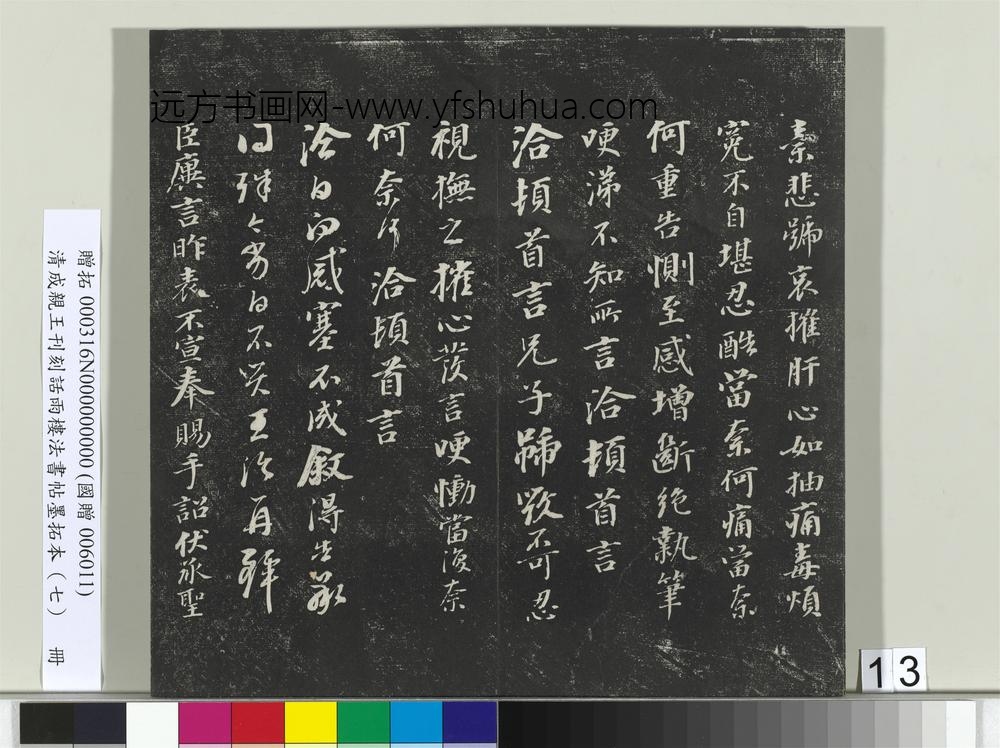 远方书画网-www.yfshuhua.com
素悲號哀摧肝心如抽痛毒煩
冤不自堪忍酷當奈何痛當奈
何重告惻至感增斷絕執筆
哽涕不知所言洽頓首言
洽頓首言兄子號毀不可忍
視撫之摧心發言哽慟當復奈
何奈何洽頓首言
洽白 感塞不成敘得告承
同 不 王洽再拜
臣廙言昨表不宣奉賜手詔伏承聖
贈拓 000316N000000000 (國贈 006011)
清成親王刊刻話雨樓法書帖墨拓本（七） 冊
13